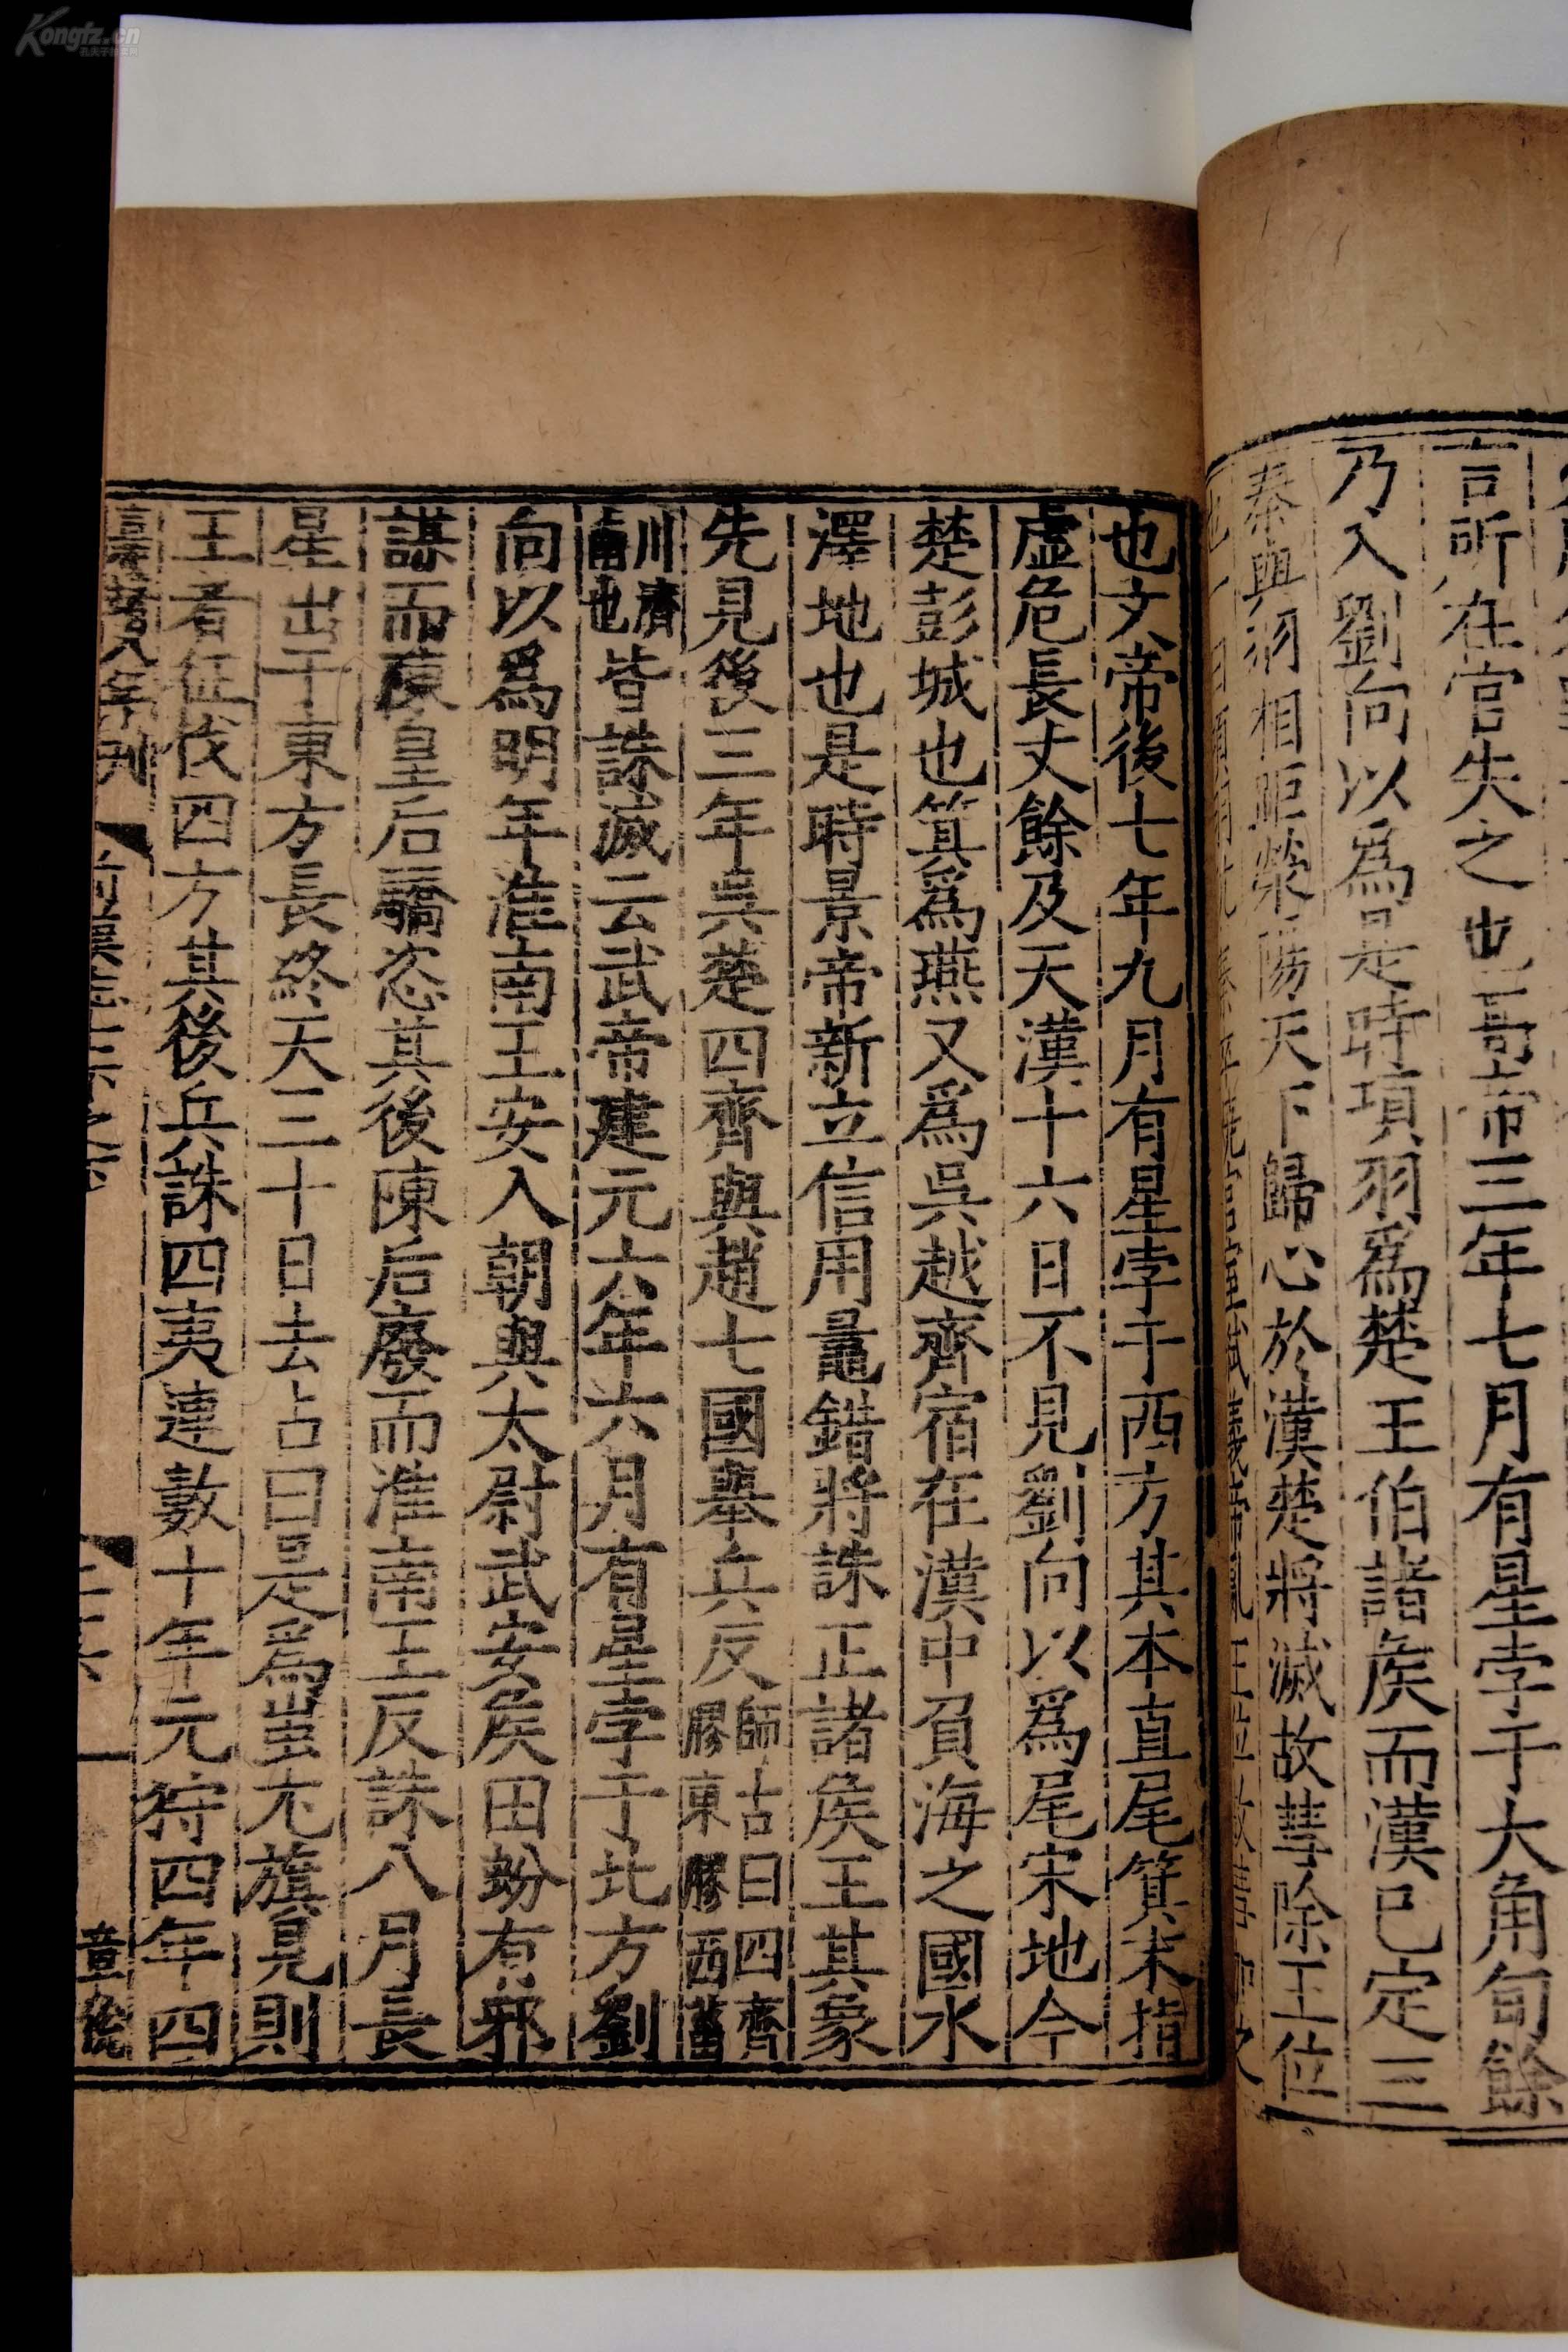 言所在官失之也高帝三年七月有星孛于大角旬餘
乃入劉向以爲是時項羽爲楚王伯諸侯而漢已定三
秦與羽相距滎陽天下歸心於漢楚將滅故彗除王位
也文帝後七年九月有星孛于西方其本直尾箕末指
虛危長丈餘及天漢十六日不見劉向以爲尾宋地今
楚彭城也箕爲燕又爲吳越齊宿在漢中負海之國水
澤地也是時景帝新立信用鼂錯將誅正諸侯王其象
先見後三年吳楚四齊與趙七國舉兵反師古曰四齊膠東膠西菑
川濟南也皆誅滅云武帝建元六年六月有星孛于北方劉
向以爲明年淮南王安入朝與太尉武安侯田蚡有邪
謀而陳皇后驕恣其後陳后廢而淮南王反誅八月長
星出于東方長終天三十日去占曰是爲蚩尤旗見則
王者征伐四方其後兵誅四夷連數十年元狩四年四
Kongfz.cn